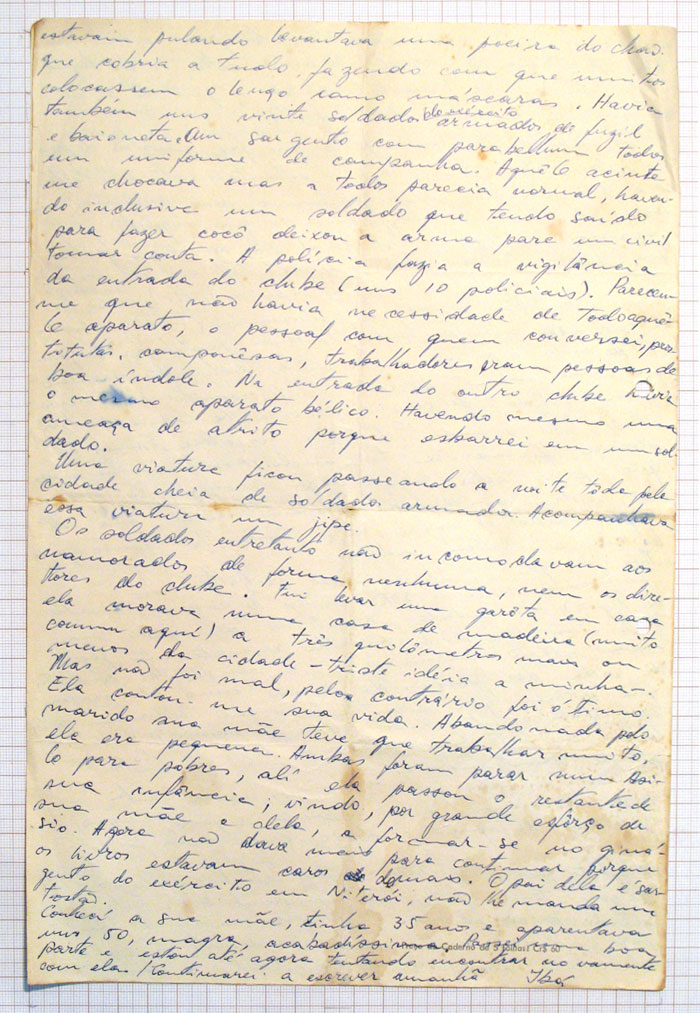 estavam pulando levantava uma poeira do chão
que cobria a tudo, fazendo com que muitos
colocassem o lenço como máscaras. Havia
também uns vinte soldados do exército armados de fuzil
e baioneta. Um sargento com parabellum todos
em uniforme de campanha. Aquêle acinte
me chocava mas a todos parecia normal, haven-
do inclusive um soldado que tendo saído
para fazer cocô deixou a arma para um civil
tomar conta. A polícia fazia a vigilância
da entrada do clube (uns 10 policiais). Pareceu
me que não havia necessidade de todo aquê-
le aparato, o pessoal com quem conversei, pros
titutas, camponêsas, trabalhadores eram pessoas de
boa índole. Na entrada do outro clube havia
o mesmo aparato bélico. Havendo mesmo uma
ameaça de atrito porque esbarrei em um sol-
dado.
Uma viatura ficou passeando a noite tôda pela
cidade cheia de soldados armados. Acompanhava
essa viatura um jipe.
Os soldados entretanto não incomodavam aos
namorados de forma nenhuma, nem os dire-
tores do clube. Fui levar uma garôta em casa
ela morava numa casa de madeira (muito
comum aqui) a três quilômetros mais ou
menos da cidade - triste idéia a minha -.
Mas não foi mal, pelo contrário foi ótimo.
Ela contou-me sua vida. Abandonada pelo
marido sua mãe teve que trabalhar muito,
ela era pequena. Ambas foram parar num Asi-
lo para pobres, ali ela passou o restante de
sua infância; vindo, por grande esfôrço de
sua mãe e dela, a formar-se no giná-
sio. Agora não dava mais para continuar porque
os livros estavam caros demais. O pai dela é sar-
gento do exército em Niterói, não lhe manda um
tostão.
Conheci a sua mãe, tinha 35 anos e aparentava
uns 50, magra, acabadíssima. uma boa
Caderno de 5 folhas Cr$ 60
parte e estou até agora tentando encontrar novamente
com ela. Continuarei a escrever amanhã